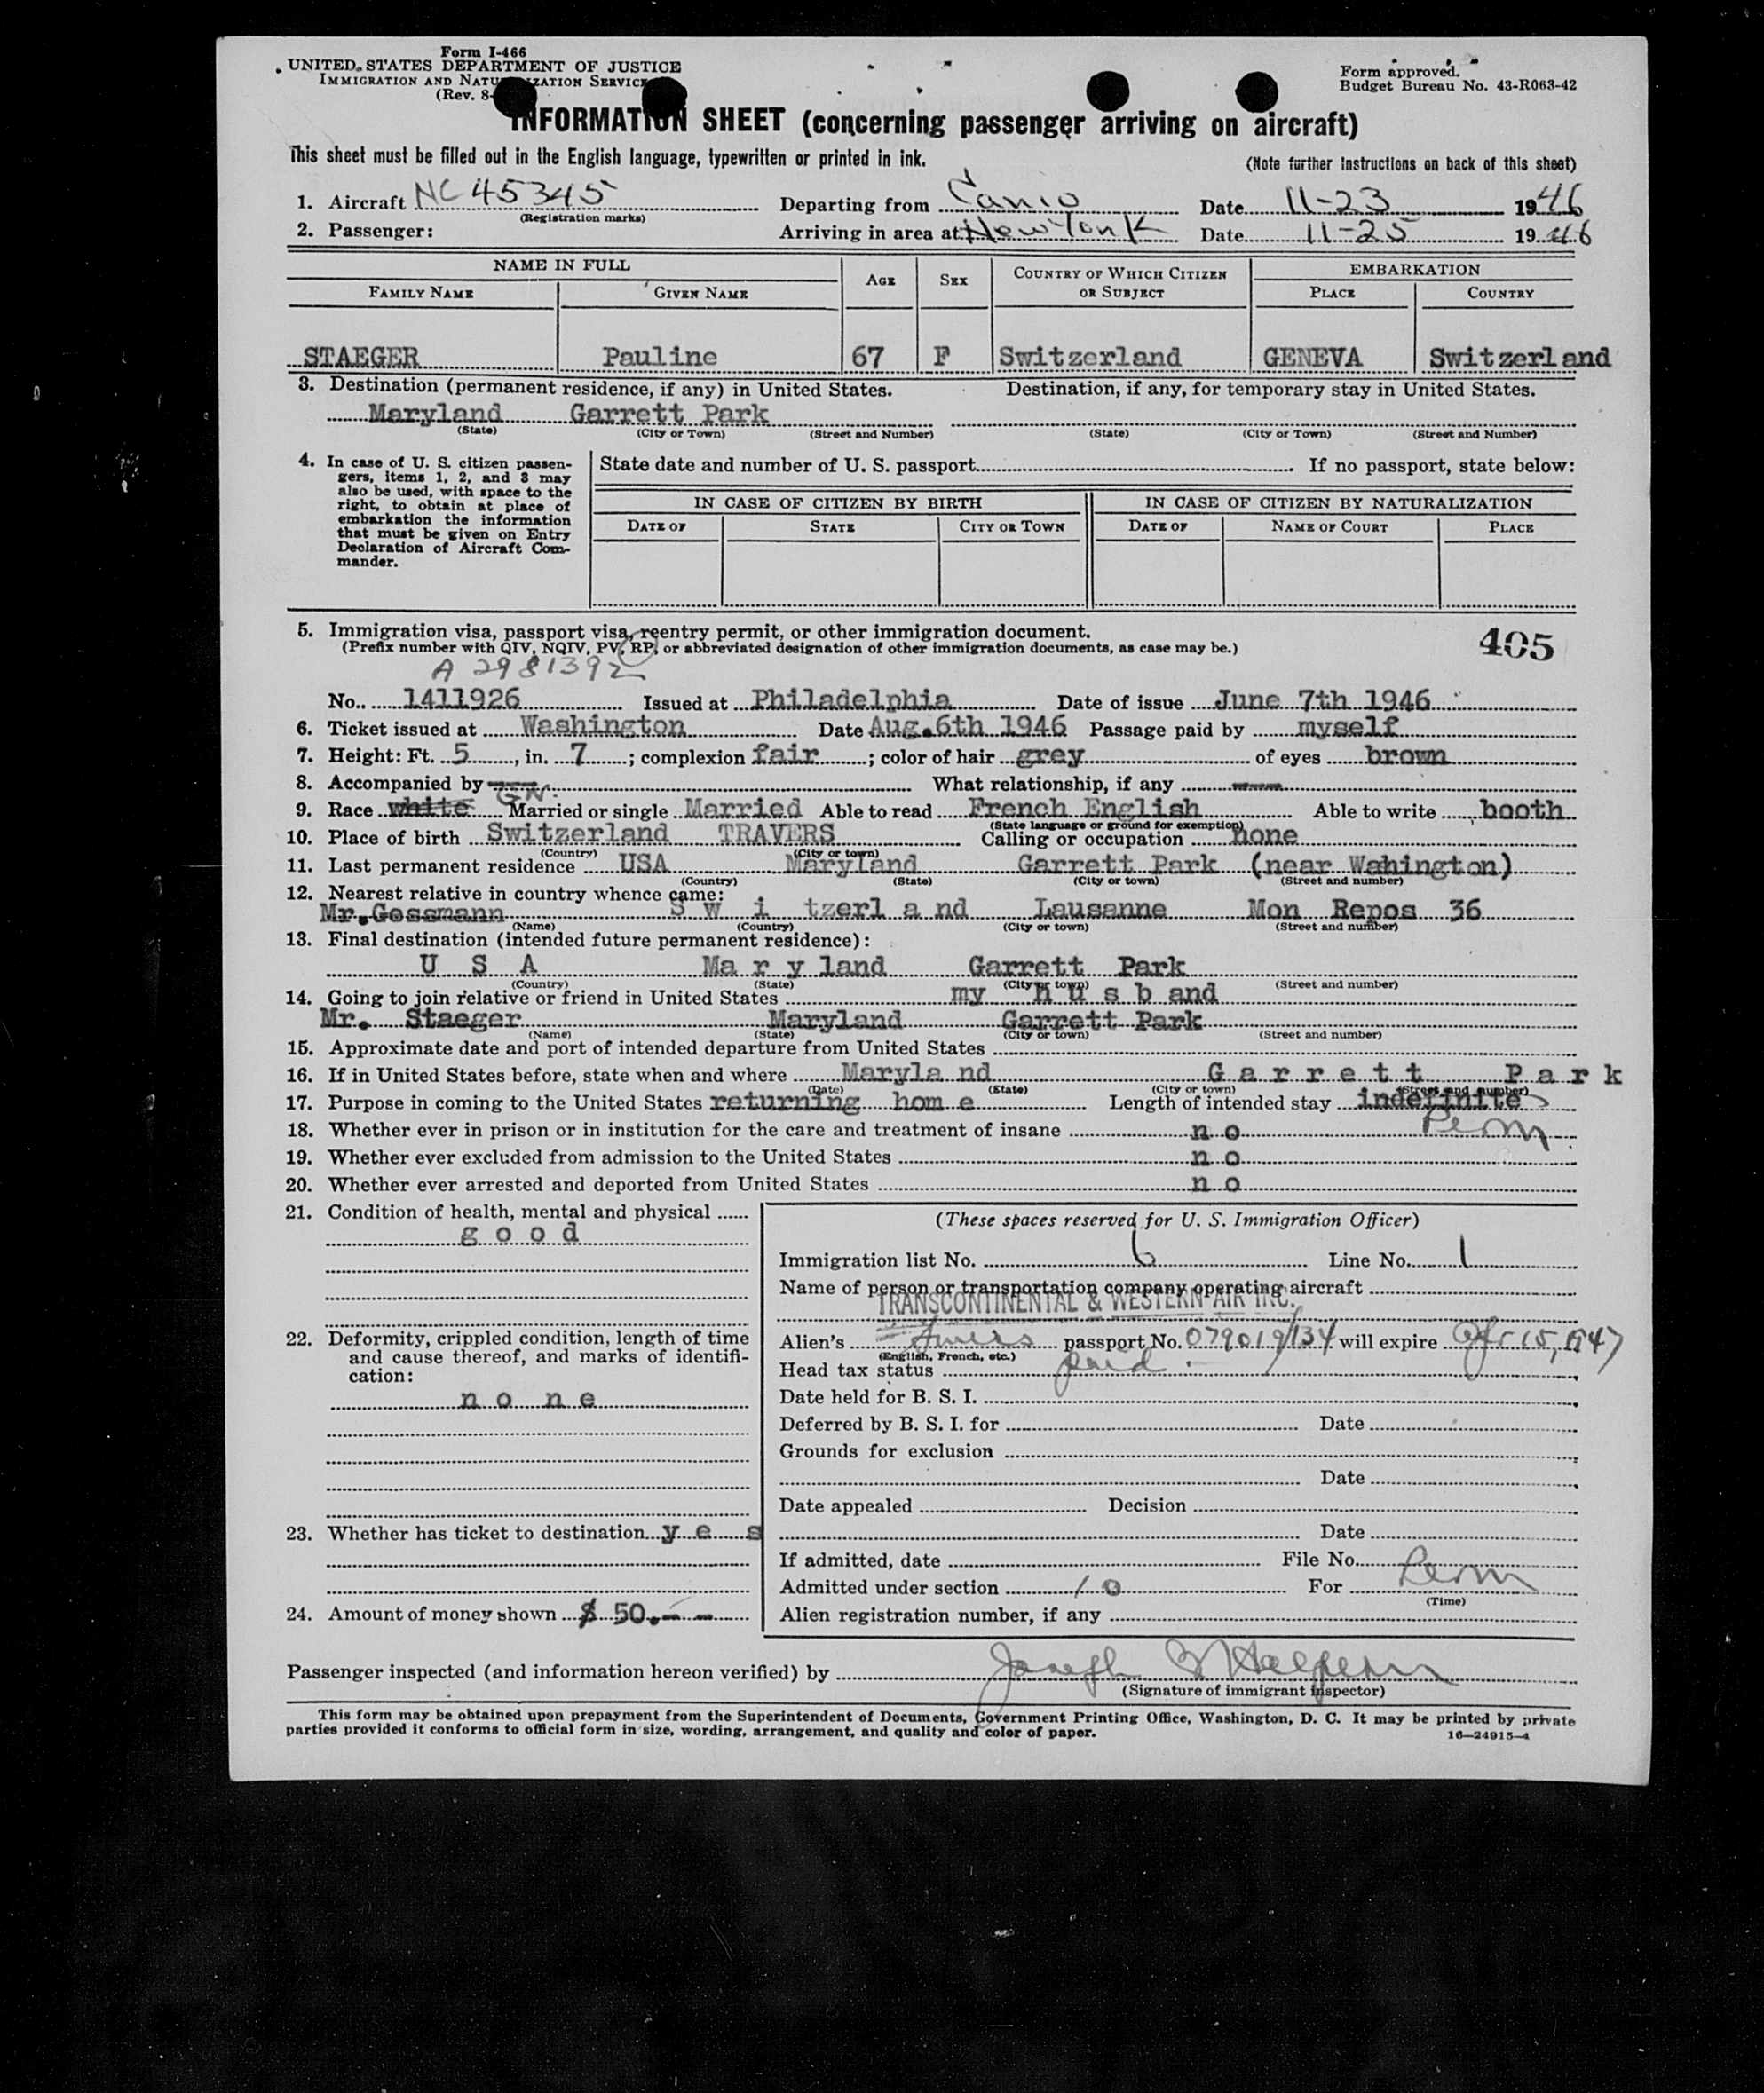 Form I-466
UNITED STATES DEPARTMENT OF JUSTICE
IMMIGRATION AND NATURALIZATION SERVICE
(Rev. 8-
Form approved.
Budget Bureau No. 43-R063-42
INFORMATION SHEET (concerning passenger arriving on aircraft)
This sheet must be filled out in the English language, typewritten or printed in ink.
(Note further instructions on back of this sheet)
1. Aircraft NC 45345 Departing from Date 11-23 1946
(Registration marks)
2. Passenger: Arriving in area at New York Date 11-25 1946
NAME IN FULL AGE SEX COUNTRY OF WHICH CITIZEN OR SUBJECT EMBARKATION
FAMILY NAME GIVEN NAME PLACE COUNTRY
STAEGER Pauline 67 F Switzerland GENEVA Switzerland
3. Destination (permanent residence, if any) in United States. Destination, if any, for temporary stay in United States.
Maryland Garrett Park
(State) (City or Town) (Street and Number) (State) (City or Town) (Street and Number)
4. In case of U. S. citizen passen-
gers, items 1, 2, and 3 may
also be used, with space to the
right, to obtain at place of
embarkation the information
that must be given on Entry
Declaration of Aircraft Com-
mander.
State date and number of U. S. passport If no passport, state below:
IN CASE OF CITIZEN BY BIRTH IN CASE OF CITIZEN BY NATURALIZATION
DATE OF STATE CITY OR TOWN DATE OF NAME OF COURT PLACE
5. Immigration visa, passport visa, reentry permit, or other immigration document.
(Prefix number with QIV, NQIV, PV, RP, or abbreviated designation of other immigration documents, as case may be.)
405
A 2981392
No. 1411926 Issued at Philadelphia Date of issue June 7th 1946
6. Ticket issued at Washington Date Aug.6th 1946 Passage paid by myself
7. Height: Ft. 5, in. 7; complexion fair; color of hair grey of eyes brown
8. Accompanied by What relationship, if any
9. Race white Married or single Married Able to read French English Able to write booth
(State language or ground for exemption)
10. Place of birth Switzerland TRAVERS Calling or occupation none
(Country) (City or town)
11. Last permanent residence USA Maryland Garrett Park (near Wahington)
(Country) (State) (City or town) (Street and number)
12. Nearest relative in country whence came:
Mr.Gossmann S w i tzerl a nd Lausanne Mon Repos 36
(Name) (Country) (City or town) (Street and number)
13. Final destination (intended future permanent residence):
U S A Ma r y land Garrett Park
(Country) (State) (City or town) (Street and number)
14. Going to join relative or friend in United States my h u s b and
Mr. Staeger Maryland Garrett Park
(Name) (State) (City or town) (Street and number)
15. Approximate date and port of intended departure from United States
16. If in United States before, state when and where Maryla nd G a r r e t t P a r k
(Date) (State) (City or town) (Street and number)
17. Purpose in coming to the United States returning hom e Length of intended stay indefinite
Perm.
18. Whether ever in prison or in institution for the care and treatment of insane n o
19. Whether ever excluded from admission to the United States n o
20. Whether ever arrested and deported from United States n o
21. Condition of health, mental and physical
g o o d
22. Deformity, crippled condition, length of time
and cause thereof, and marks of identifi-
cation:
n o n e
23. Whether has ticket to destination y e s
24. Amount of money shown $ 50.- -
(These spaces reserved for U. S. Immigration Officer)
Immigration list No. 6 Line No. 1
Name of person or transportation company operating aircraft
TRANSCONTINENTAL & WESTERN AIR INC.
Alien's Swiss passport No. 079019/134 will expire Apr 15, 1947
(English, French, etc.)
Head tax status paid
Date held for B. S. I.
Deferred by B. S. I. for Date
Grounds for exclusion
Date
Date appealed Decision
Date
If admitted, date File No.
Admitted under section 10 For Perm
(Time)
Alien registration number, if any
Passenger inspected (and information hereon verified) by Joseph Halpern
(Signature of immigrant inspector)
This form may be obtained upon prepayment from the Superintendent of Documents, Government Printing Office, Washington, D. C. It may be printed by private
parties provided it conforms to official form in size, wording, arrangement, and quality and color of paper.
16—24915-4